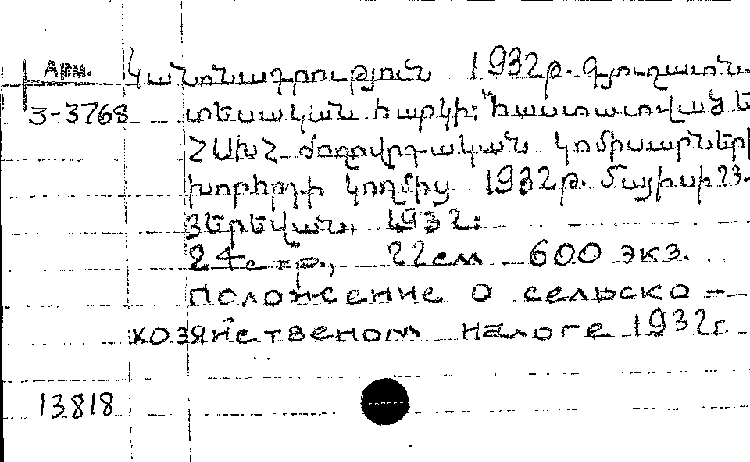 Арм. Կանոնադրություն 1932թ. Գյուղատն.
3-3768 տեսական հարկի: Հաստատված Ե
ՀՍԽՀ Ժողովրդական կոմիսարների
խորհրդի կողմից 1932թ. Մայիսի 23.
Յերեվան, 1932:
24стр., 22см 600 экз.
Положение о сельско-
хозяйственом налоге 1932г.
13818